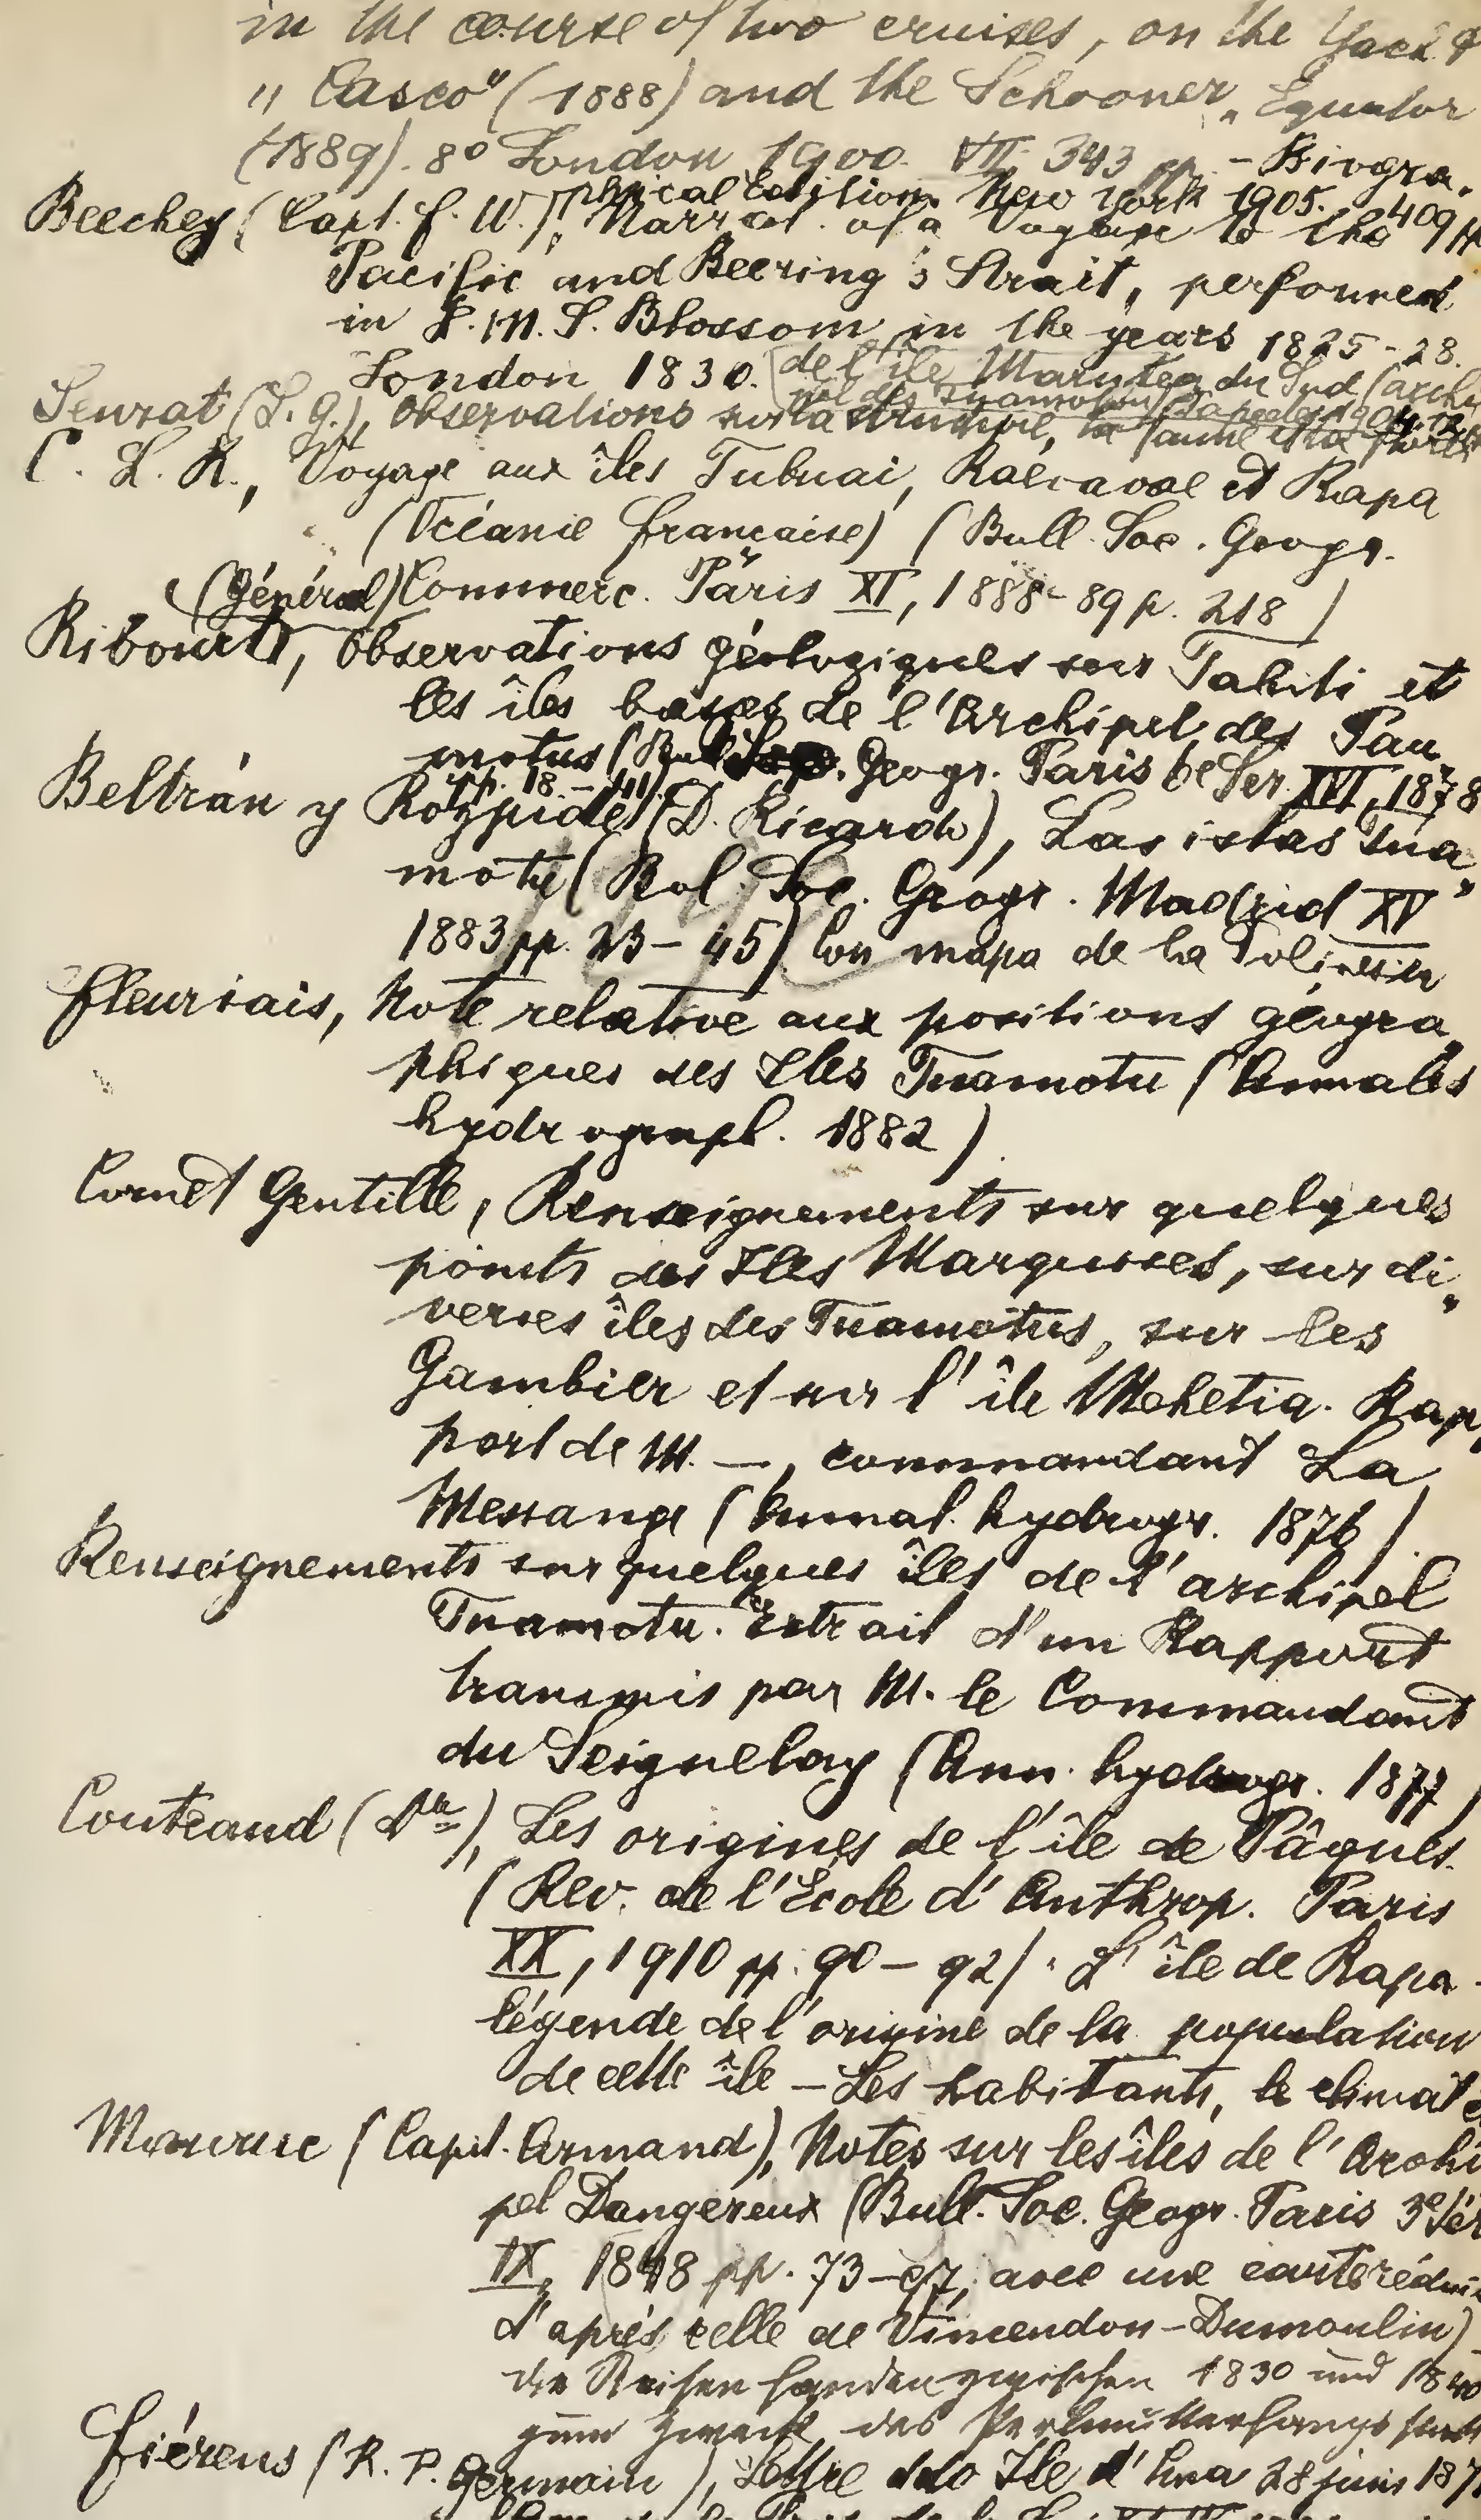 in the course of two cruises, on the Yacht
"Casco" (1888) and the Schooner „Equator
(1889). 8° London 1900. VII, 343 pp. - Biogra„
phical Edition. New York 1905. 409 pp
Beechey (Capt. F. W.), Narrat. of a Voyage to the
Pacific and Beering's Strait, performed
in H. M. S. Blossom in the years 1825-28.
London 1830.
Seurat (L. G.), Observations sur la structure, la faune et la flore
de l'île Marutea du Sud (archi
pel des Tuamotu) Papeete 1904.
C. L. R., Voyage aux îles Tubuai, Raivavae et Rapa
(Océanie française) (Bull. Soc. Geogr.
Commerc. Paris XI, 1888-89 p. 218)
Ribourt, (Général) Observations géologiques sur Tahiti et
les îles basses de l'Archipel des Pau„
motus (Bull. Soc. Geogr. Paris 6e Ser. XVI, 1878
pp. 18 - 41).
Beltrán y Rózpide (D. Ricardo), Las islas Tua„
motu (Bol. Soc. Geogr. Madrid XV
1883 pp. 23-45) Con mapa de la Polinesia
Fleuriais, Note relative aux positions géogra„
phiques des Iles Tuamotu (Annales
hydrograph. 1882)
Cornet Gentille, Renseignements sur quelques
points des Iles Marquises, sur di„
verses îles des Tuamotus, sur les
Gambier et sur l'île Mehetia. Rap„
port de M. —, commandant La
Messange (Annal. hydrogr. 1876).
Renseignements sur quelques îles de l'archipel
Tuamotu. Extrait d'un Rapport
transmis par M. le Commandant
du Seignelay (Ann. hydrogr. 1877)
Couteaud (Dr), Les origines de l'île de Pâques.
(Rev. de l'École d'Anthrop. Paris
XX, 1910 pp. 90-92). L'île de Rapa -
légende de l'origine de la population
de cette île - Les habitants, le climat
(Capit. Armand), Notes sur les îles de l'Archi
pel Dangereux (Bull. Soc. Geogr. Paris 3e Sér
IX, 1848 pp. 73-97, avec une carte réduite
d'après celle de Vincendon-Dumoulin)
die Reisen fanden zwischen 1830 und 1840
zum Zweck des Perlmutterfangs statt
Fiérens (R. P. Germain), Lettre ddo Ile d'Anaa 28 juin 187